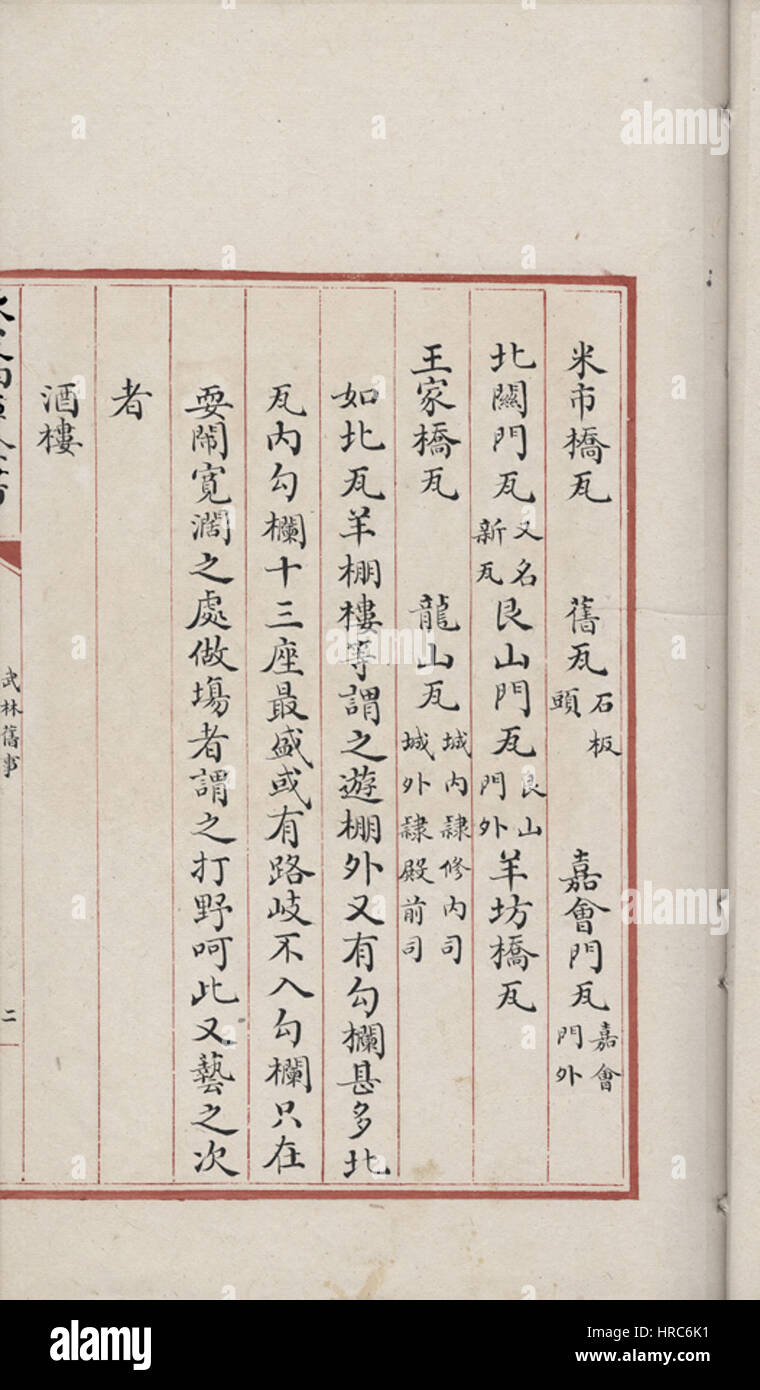 米市橋瓦 舊瓦石板頭 嘉會門瓦嘉會門外
北關門瓦又名新瓦 艮山門瓦艮山門外 羊坊橋瓦
王家橋瓦 龍山瓦城內隷修內司城外隷殿前司
如北瓦羊棚樓等謂之遊棚外又有勾欄甚多北
瓦內勾欄十三座最盛或有路岐不入勾欄只在
耍鬧寬濶之處做塲者謂之打野呵此又藝之次
者
酒樓
武林舊事
二
alamy
alamy
alamy
Image ID: HRC6K1
www.alamy.com